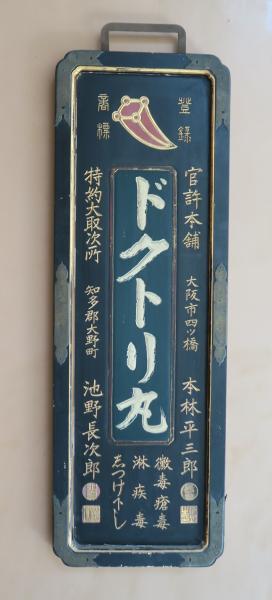 登録
商標
官許本舗 大阪市四ツ橋 本林平三郎
ドクトリ丸
黴毒瘡毒
淋疾毒
志つけ下し
特約大取次所 知多郡大野町 池野長次郎